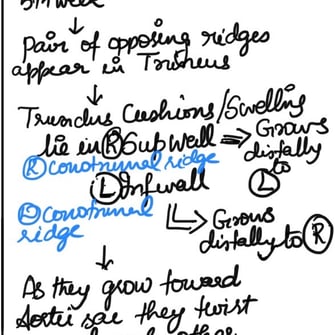 5th week
Pair of opposing ridges
appear in Truncus
Truncus Cushions/Swelling
lie in Ⓡ Sup wall ⇒ Grows
distally
to
Ⓛ
Ⓡ conotruncal ridge
Ⓛ Inf wall
Ⓛ conotruncal
ridge
Grows
distally to Ⓡ
As they grow toward
Aortic sac they twist